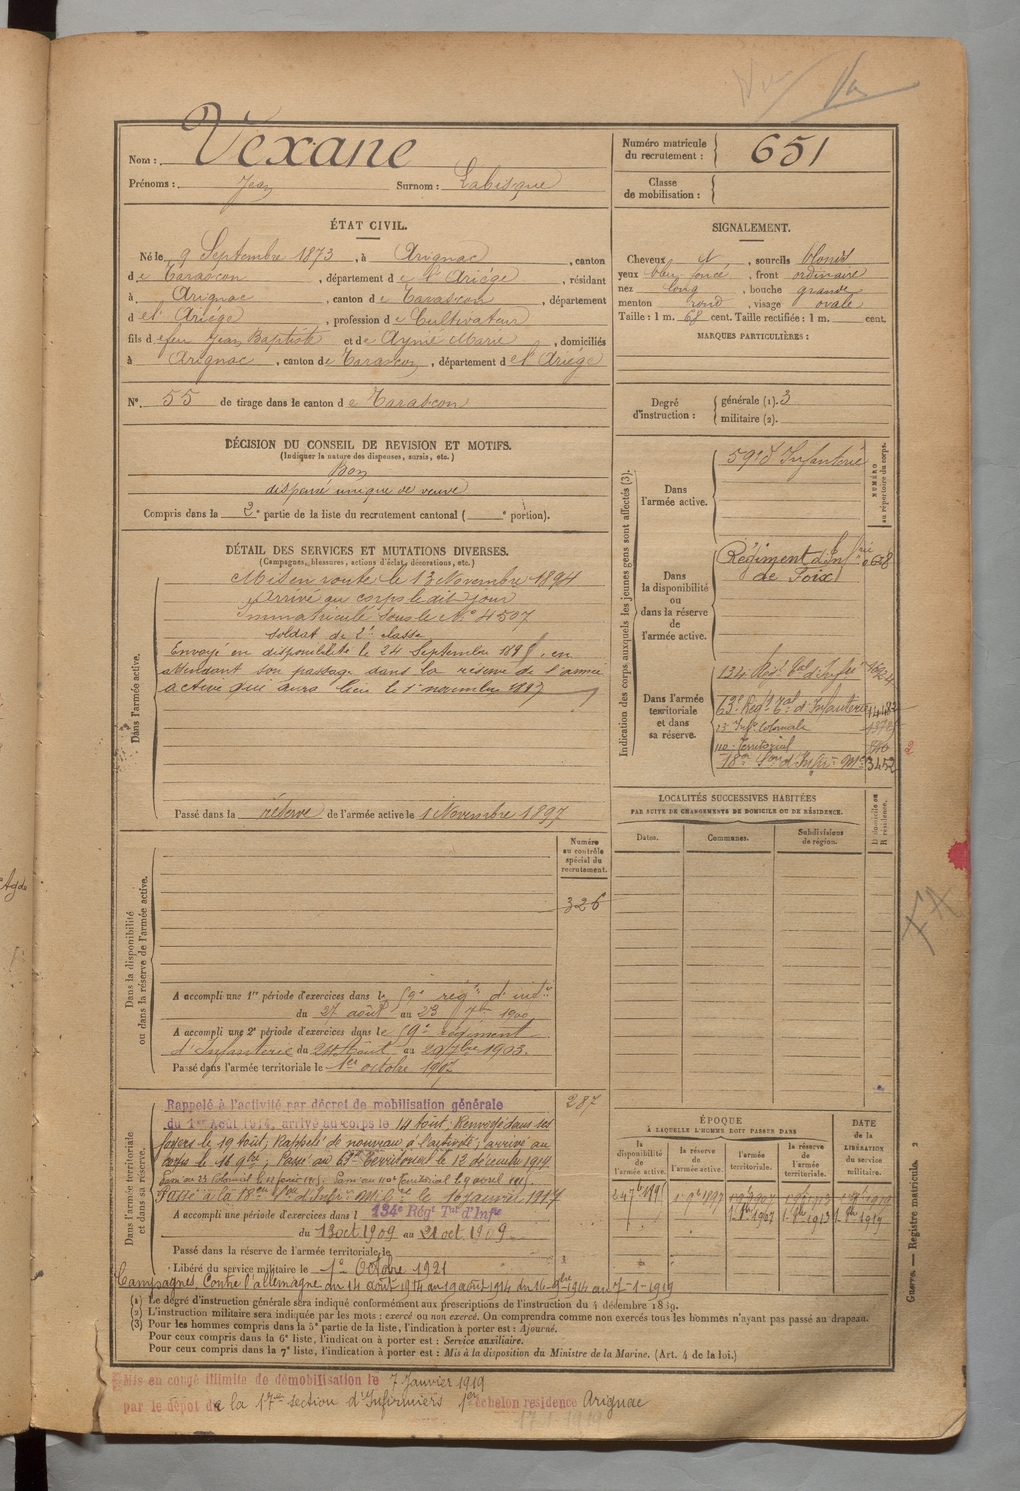 Nom : Vexane
Prénoms : Jean Surnom : Labisque
Numéro matricule du recrutement : 651
Classe de mobilisation :
ÉTAT CIVIL.
Né le 9 Septembre 1873, à Arignac, canton
de Tarascon, département de l'Ariège, résidant
à Arignac, canton de Tarascon, département
de l'Ariège, profession de Cultivateur
fils de feu Jean Baptiste et de Aymé Marie, domiciliés
à Arignac, canton de Tarascon, département de l'Ariège
N° 55 de tirage dans le canton de Tarascon
SIGNALEMENT.
Cheveux et, sourcils blonds
yeux bleu foncé, front ordinaire
nez long, bouche grande
menton rond, visage ovale
Taille : 1 m. 68 cent. Taille rectifiée : 1 m. cent.
MARQUES PARTICULIÈRES :
Degré d'instruction : générale (1). 3
militaire (2).
DÉCISION DU CONSEIL DE REVISION ET MOTIFS.
(Indiquer la nature des dispenses, sursis, etc.)
Bon
dispensé unique de veuve
Compris dans la 2e partie de la liste du recrutement cantonal ( e portion).
DÉTAIL DES SERVICES ET MUTATIONS DIVERSES.
(Campagnes, blessures, actions d'éclat, décorations, etc.)
Dans l'armée active.
Mis en route le 13 Novembre 1894
Arrivé au corps le dit jour
immatriculé sous le No 4507
soldat de 2e classe
Envoyé en disponibilité le 24 Septembre 1895, en
attendant son passage dans la réserve de l'armée
active qui aura lieu le 1er novembre 1897
Passé dans la réserve de l'armée active le 1 Novembre 1897
Indication des corps auxquels les jeunes gens sont affectés (3).
NUMÉRO au répertoire du corps.
Dans l'armée active.
59e d'Infanterie
Dans la disponibilité ou dans la réserve de l'armée active.
Régiment d'Infrie
de Foix
0628
Dans l'armée territoriale et dans sa réserve.
134e Régt tal d'Infie
63e Régt tal d'Infanterie
23e Infie Coloniale
110e territorial
18e Son d'Infirs Mres 3452
LOCALITÉS SUCCESSIVES HABITÉES
PAR SUITE DE CHANGEMENTS DE DOMICILE OU DE RÉSIDENCE.
Dates. Communes. Subdivisions de région. Domicile ou Résidence.
Dans la disponibilité ou dans la réserve de l'armée active.
Numéro au contrôle spécial du recrutement.
326
A accompli une 1re période d'exercices dans le 59e régt d'infie
du 27 août au 23 7bre 1900
A accompli une 2e période d'exercices dans le 59e régiment
d'Infanterie du 24 Août au 20 7bre 1903.
Passé dans l'armée territoriale le 1er octobre 1907
Dans l'armée territoriale et dans sa réserve.
287
Rappelé à l'activité par décret de mobilisation générale
du 1er Août 1914, arrivé au corps le 14 Août; Renvoyé dans ses
foyers le 19 Août; Rappelé de nouveau à l'activité; arrivé au
corps le 16 9bre; Passé au 63e Territorial le 12 décembre 1914
Passé au 23 Colonial le 1915. Passé au 110e Territorial le 9 avril 1915.
Passé à la 18e Son d'Infirs Milres le 16 Janvier 1917
A accompli une période d'exercices dans l 134e Régt Tal d'Infie
du 13 oct 1909 au 21 oct 1909
Passé dans la réserve de l'armée territoriale le
Libéré du service militaire le 1er Octobre 1921
Campagnes. Contre l'allemagne du 14 août 1914 au 19 août 1914 du 16 9bre 1914 au 7-1-1919
ÉPOQUE
À LAQUELLE L'HOMME DOIT PASSER DANS
la disponibilité de l'armée active. la réserve de l'armée active. l'armée territoriale. la réserve de l'armée territoriale.
DATE de la LIBÉRATION du service militaire.
24 7bre 1895 1er 9e 1897
1er 8bre 1907 1er 8bre 1913 1er 8bre 1919
(1) Le degré d'instruction générale sera indiqué conformément aux prescriptions de l'instruction du 4 décembre 1889.
(2) L'instruction militaire sera indiquée par les mots : exercé ou non exercé. On comprendra comme non exercés tous les hommes n'ayant pas passé au drapeau.
(3) Pour les hommes compris dans la 5e partie de la liste, l'indication à porter est : Ajourné.
Pour ceux compris dans la 6e liste, l'indication à porter est : Service auxiliaire.
Pour ceux compris dans la 7e liste, l'indication à porter est : Mis à la disposition du Ministre de la Marine. (Art. 4 de la loi.)
Guerre. — Registre matricule. 2
Mis en congé illimité de démobilisation le 7 Janvier 1919
par le dépôt de la 17me section d'Infirmiers 1er échelon résidence Arignac